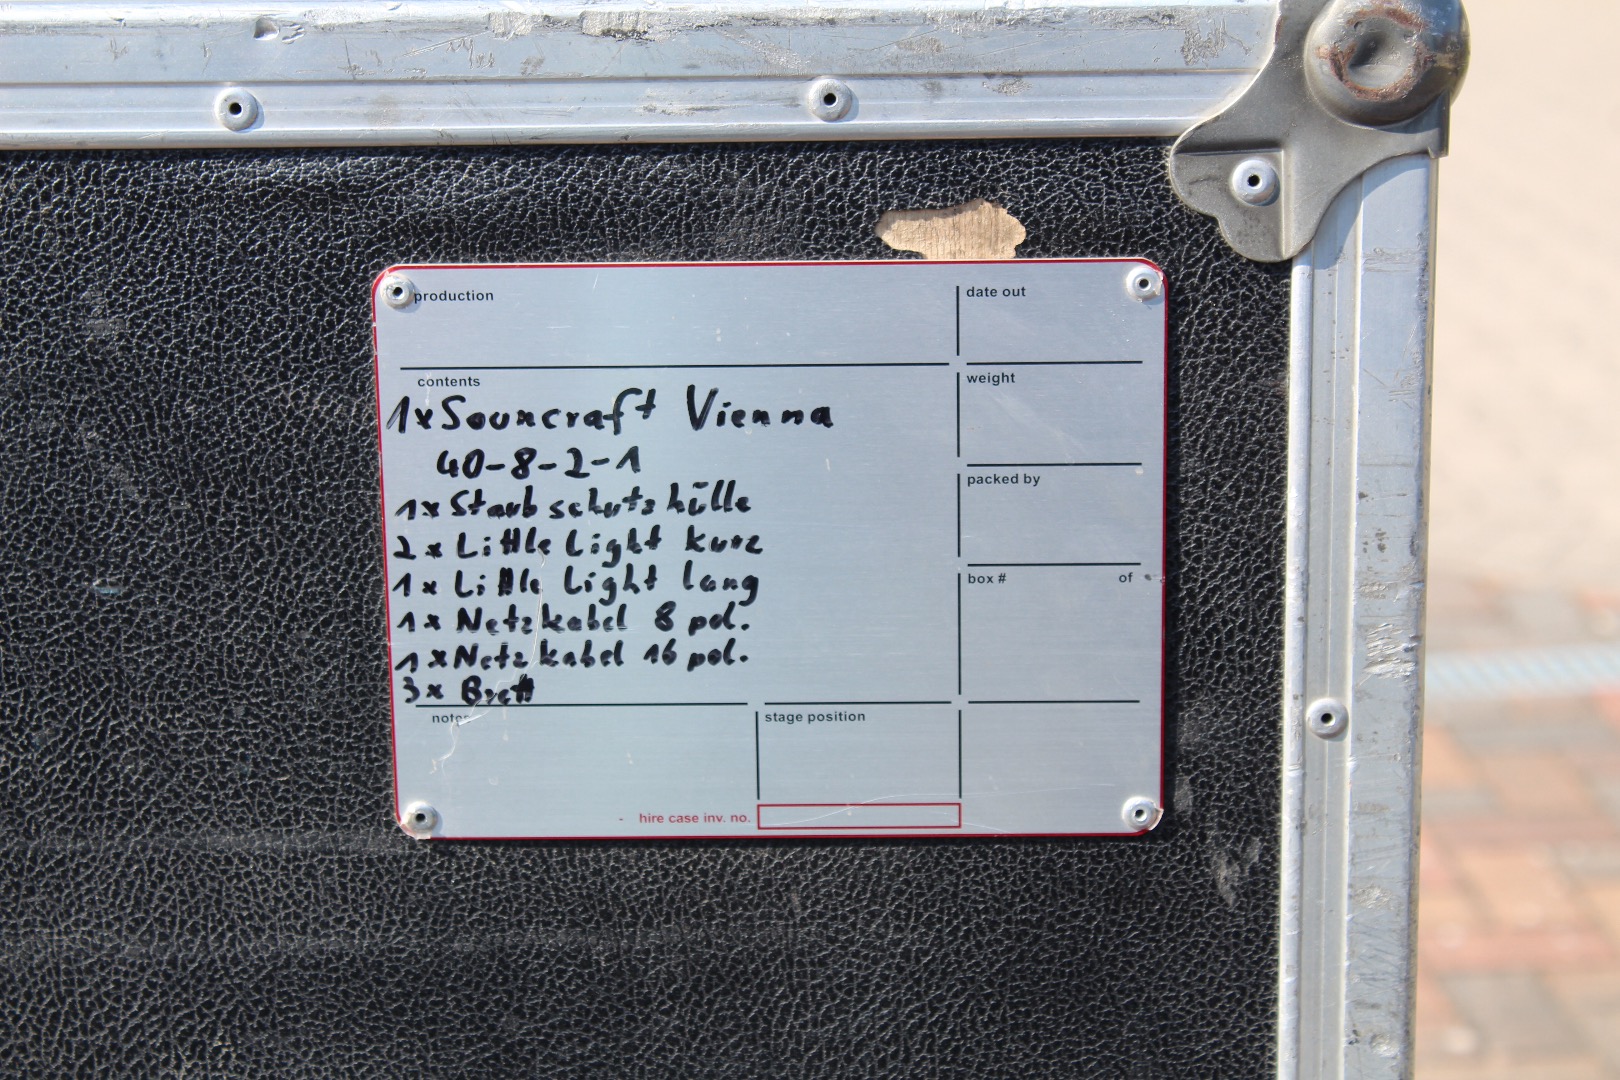 production
date out
contents
weight
1x Souncraft Vienna
40-8-2-1
1x Staubschutzhülle
packed by
2x Little Light kurz
1x Little Light lang
box # of
1x Netzkabel 8 pol.
1x Netzkabel 16 pol.
3x Brett
notes
stage position
- hire case inv. no.